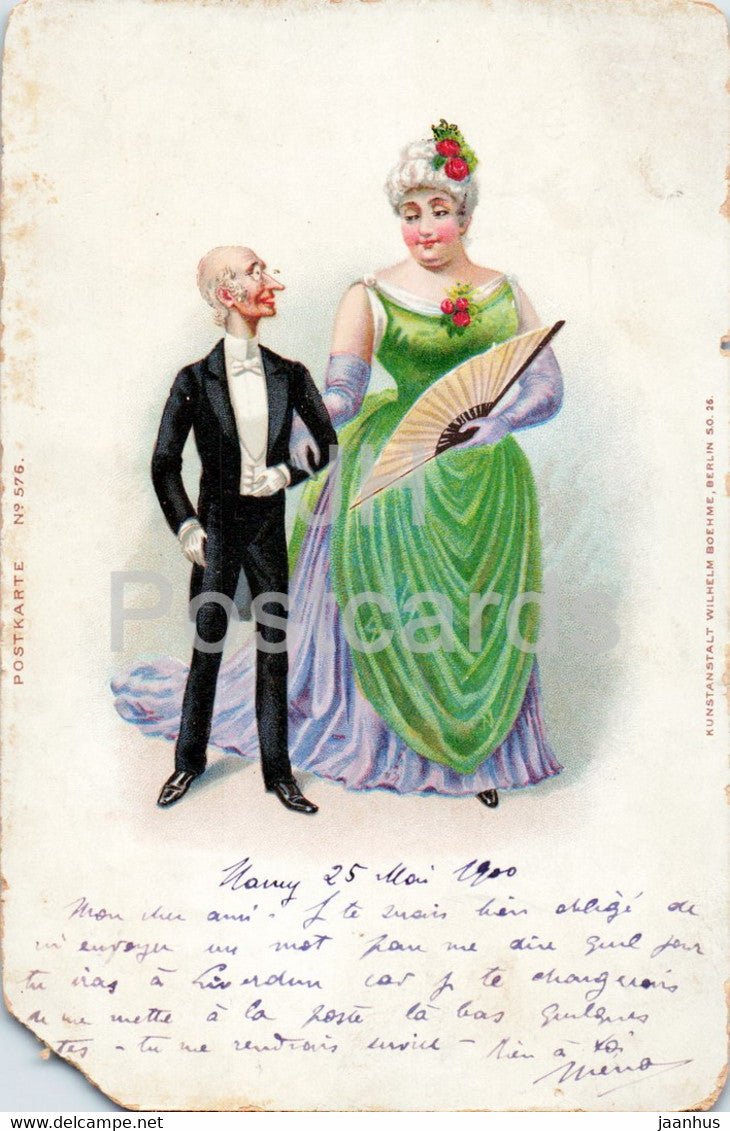 POSTKARTE Nº 576.
KUNSTANSTALT WILHELM BOEHME, BERLIN S.O. 26.
JH
Postcards
Nancy 25 Mai 1900
Mon cher ami - Je te serais bien obligé de
m'envoyer un mot pour me dire quel jour
tu iras à Liverdun car je te chargerais
de me mettre à la poste là bas quelques
tes - tu me rendrais service - Bien à toi
jaanhus